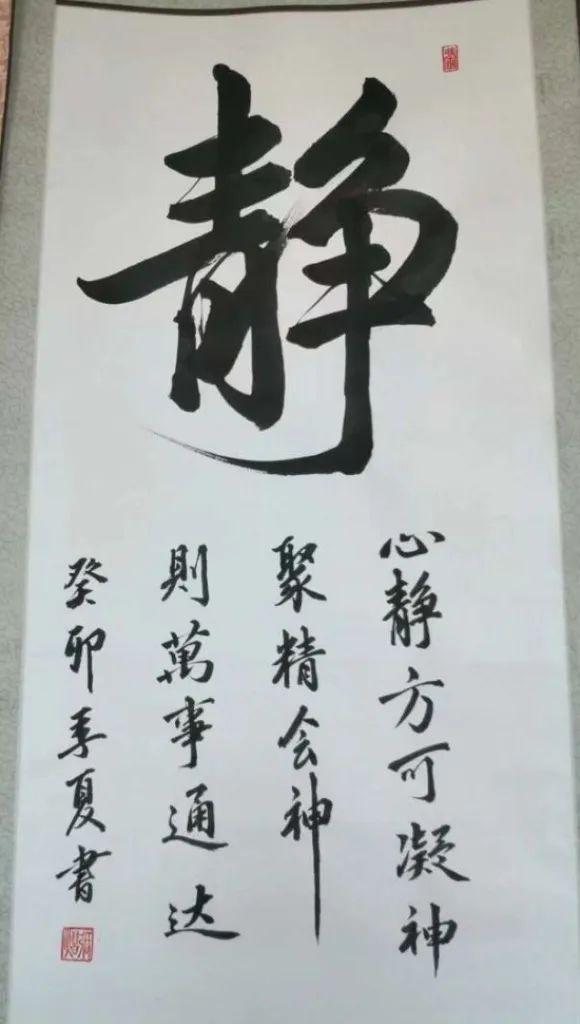 静
心静方可凝神
聚精会神
則萬事通达
癸卯季夏書